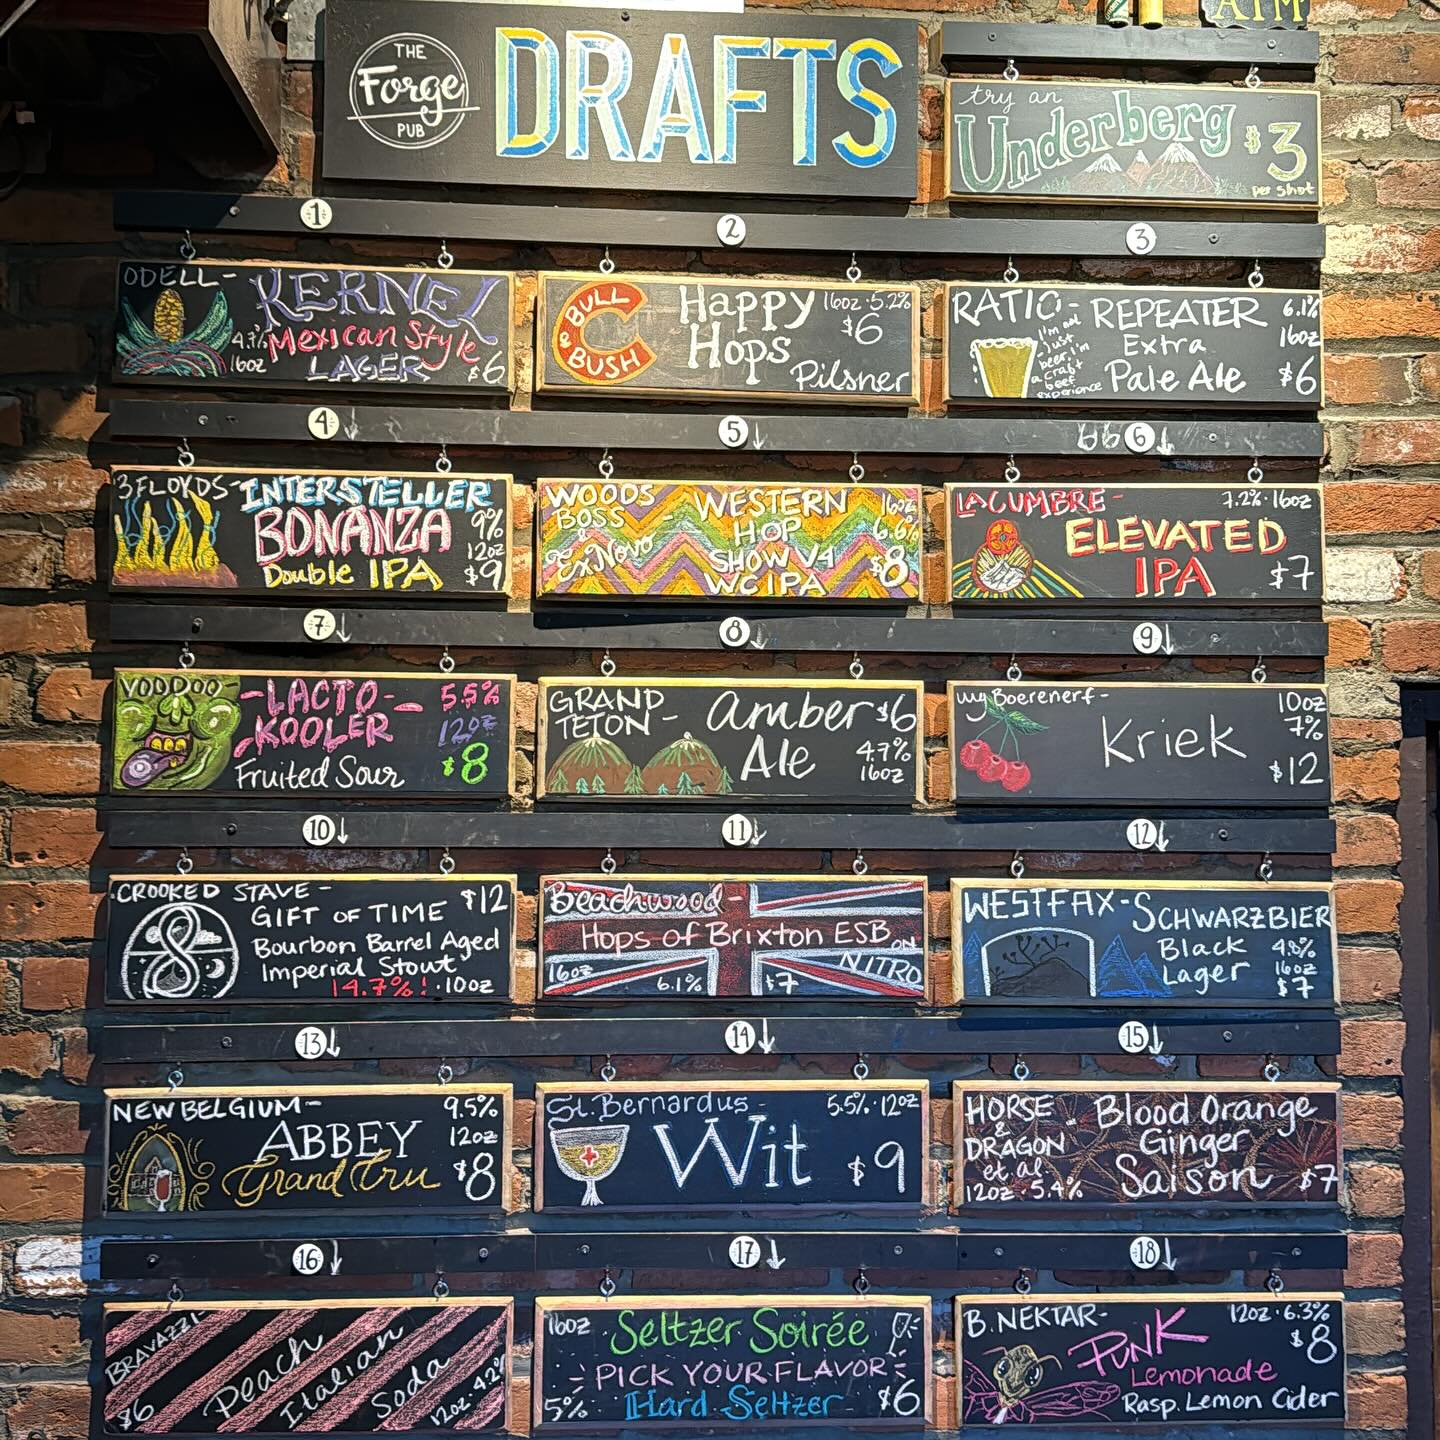 THE
Forge
PUB
DRAFTS
ATM
try an
Underberg $3
per shot
1
2
3
ODELL-
KERNEL
4.7%
16oz
Mexican Style
LAGER
$6
BULL
&
BUSH
Happy
Hops
16oz · 5.2%
$6
Pilsner
RATIO-
I'm not
just
beer, I'm
a craft
beer
experience
REPEATER
Extra
Pale Ale
6.1%
16oz
$6
4
5
6
3 FLOYDS-
INTERSTELLER
BONANZA
Double IPA
9%
12oz
$9
WOODS
BOSS
&
ExNovo
- WESTERN
HOP
SHOW V4
WC IPA
16oz
6.6%
$8
LA CUMBRE-
7.2% · 16oz
ELEVATED
IPA
$7
7
8
9
VOODOO
-LACTO-
KOOLER
Fruited Sour
5.5%
12oz
$8
GRAND
TETON-
Amber
Ale
$6
4.7%
16oz
Boerenerf-
Kriek
10oz
7%
$12
10
11
12
CROOKED STAVE-
$12
GIFT OF TIME
Bourbon Barrel Aged
Imperial Stout
14.7%! · 10oz
Beachwood-
Hops of Brixton ESB
ON
NITRO
16oz
6.1%
$7
WESTFAX-
SCHWARZBIER
Black
Lager
4.8%
16oz
$7
13
14
15
NEW BELGIUM-
ABBEY
Grand Cru
9.5%
12oz
$8
St. Bernardus-
5.5% · 12oz
Wit
$9
HORSE
&
DRAGON
et al
12oz · 5.4%
- Blood Orange
Ginger
Saison
$7
16
17
18
BRAVAZZI-
Peach
Italian
Soda
$6
12oz · 4.2%
16oz
Seltzer Soirée
PICK YOUR FLAVOR
Hard Seltzer
5%
$6
B. NEKTAR-
12oz · 6.3%
$8
PUNK
Lemonade
Rasp. Lemon Cider